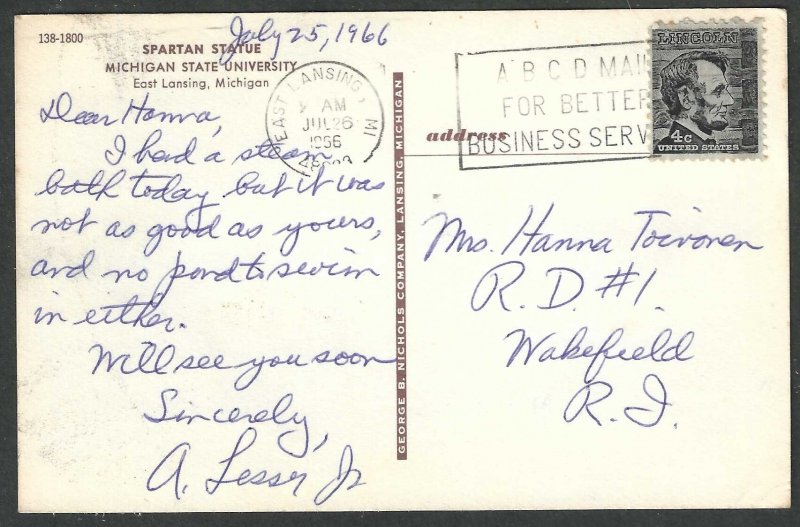 July 25, 1966
138-1800
SPARTAN STATUE
MICHIGAN STATE UNIVERSITY
East Lansing, Michigan
Dear Hanna,
I had a steam
bath today but it was
not as good as yours,
and no pond to swim
in either.
Will see you soon
Sincerely,
A. Lesser Jr
EAST LANSING, MI
AM
JUL 26
1966
GEORGE B. NICHOLS COMPANY, LANSING, MICHIGAN
address
A B C D MAI
FOR BETTER
BUSINESS SERV
LINCOLN
4c
UNITED STATES
Mrs. Hanna Toivonen
R. D. #1.
Wakefield
R. I.